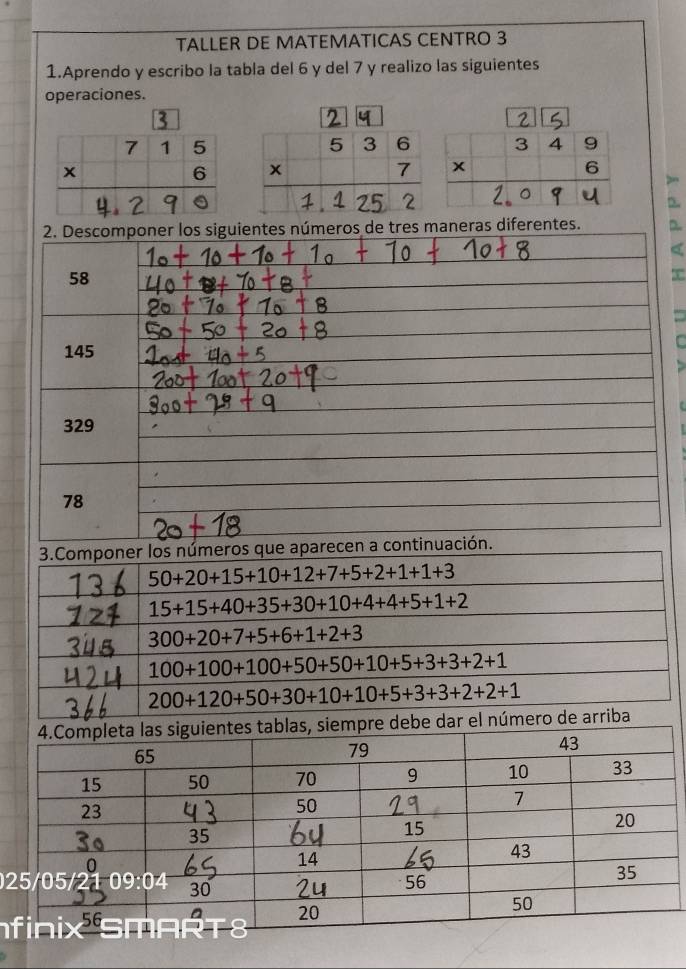 TALLER DE MATEMATICAS CENTRO 3
1.Aprendo y escribo la tabla del 6 y del 7 y realizo las siguientes
operaciones.
3 2 4 2 5
7 1 5 5 3 6 3 4 9
x 6 x 7 x 6
4.290 1.1 25 2 2.094
2. Descomponer los siguientes números de tres maneras diferentes.
10+10+10+10+10+10+8
58 40+8+10+8+
20+10+10+8
50+50+20+8
145 100+40+5
200+100+20+9
300+28+9
329
78
20+18
3.Componer los números que aparecen a continuación.
136 50+20+15+10+12+7+5+2+1+1+3
127 15+15+40+35+30+10+4+4+5+1+2
345 300+20+7+5+6+1+2+3
424 100+100+100+50+50+10+5+3+3+2+1
366 200+120+50+30+10+10+5+3+3+2+2+1
4.Completa las siguientes tablas, siempre debe dar el número de arriba
65 79 43
15 50 70 9 10 33
23 43 50 29 7
30 35 64 15 20
0 65 14 65 43
35 30 24 56 35
56 9 20 50
025/05/21 09:04
nfinix SMART 8
HAPPY